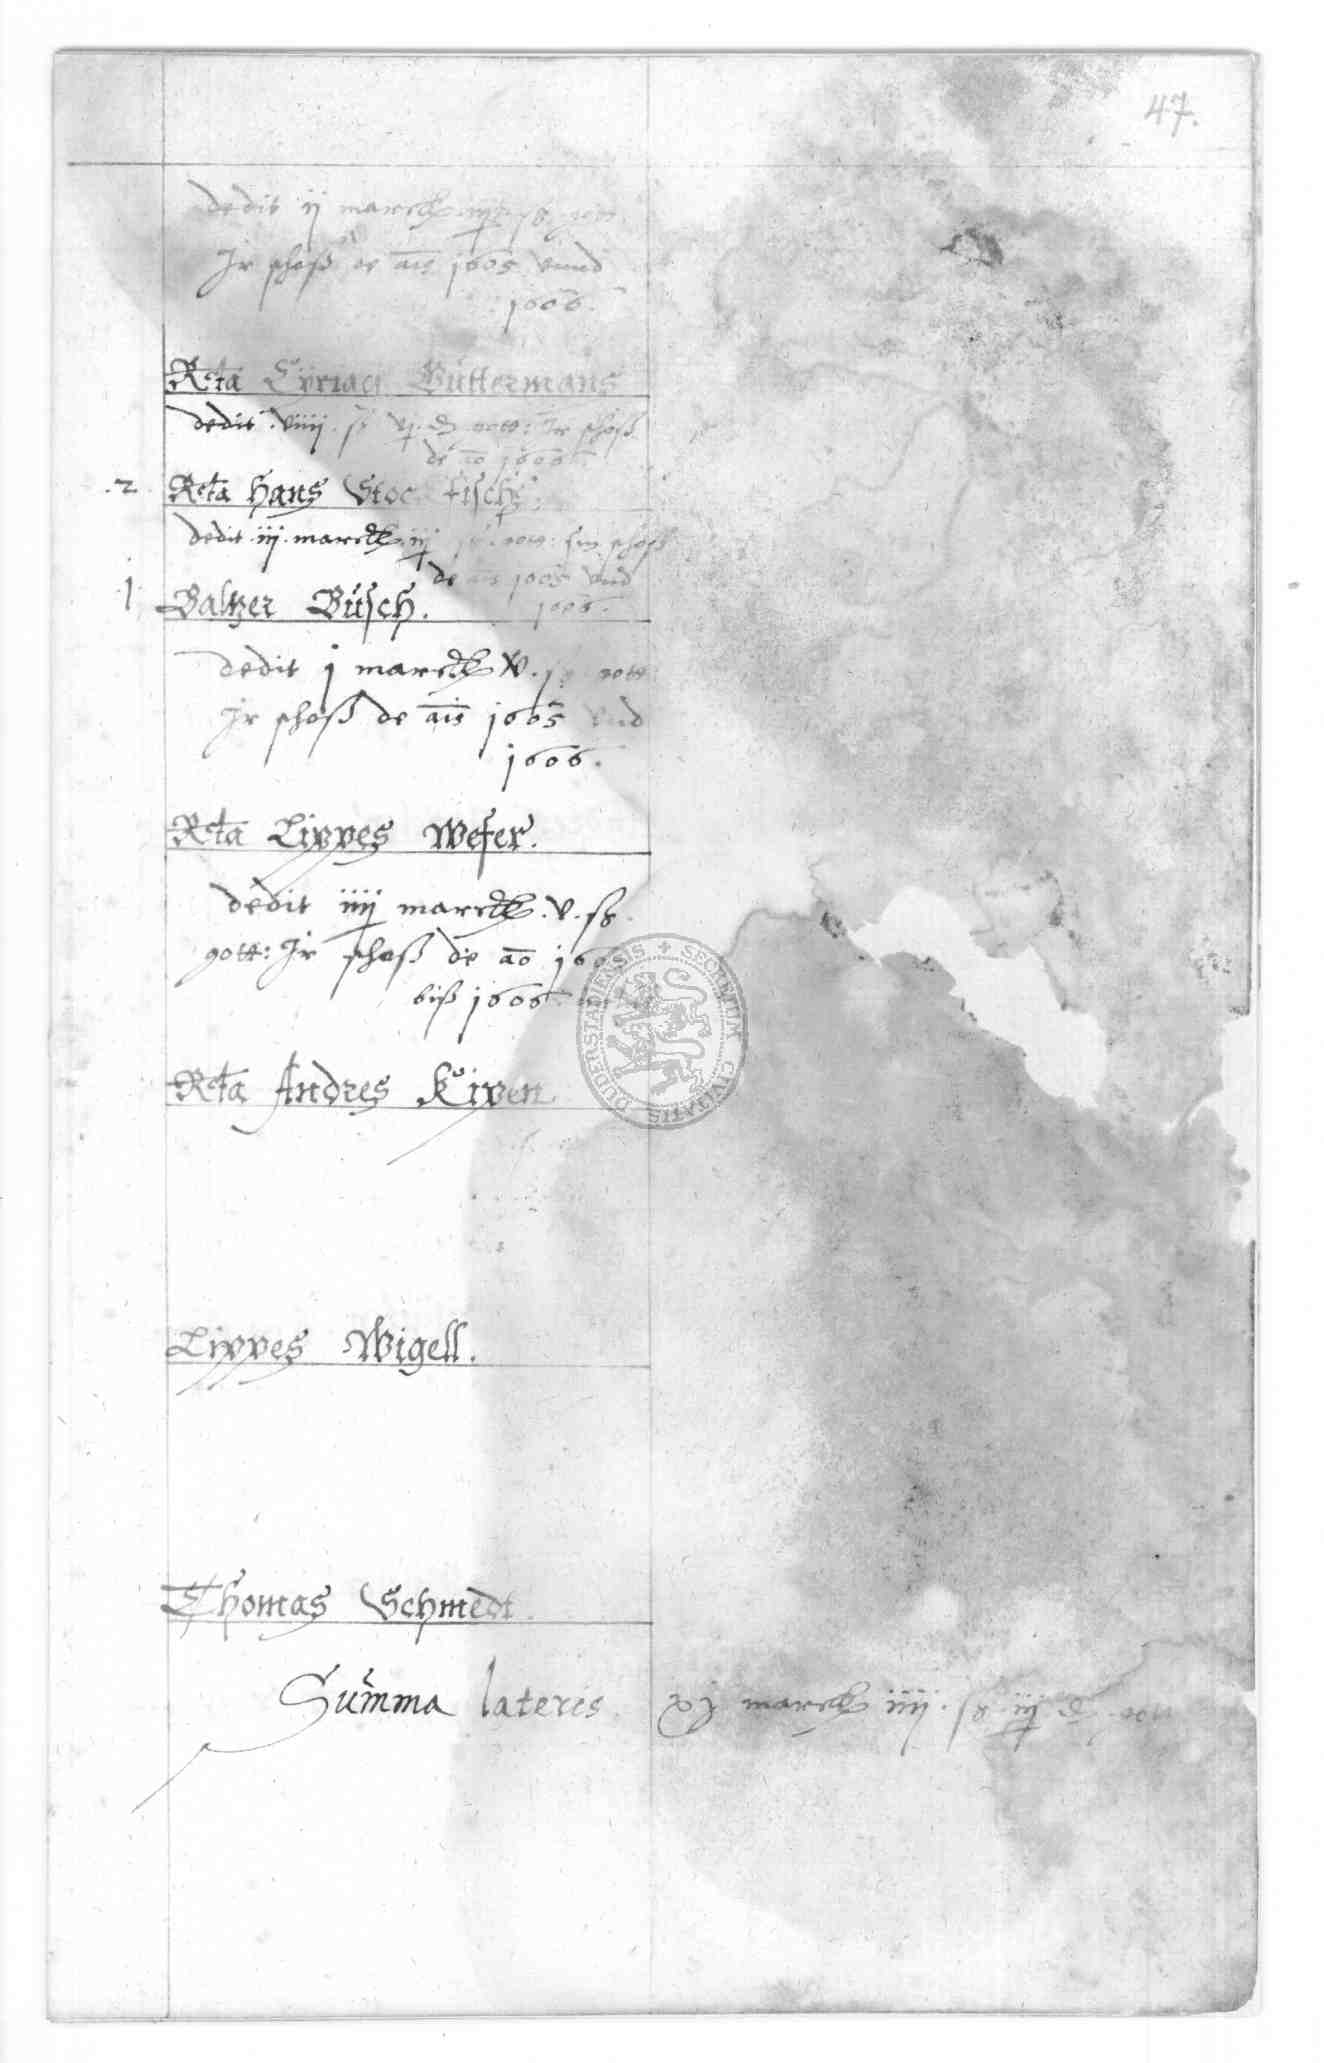 47.
dedit ij marck iij ß gott:
Jr schoß de ais 1605 vnnd
1606.
Rcta Cyriaci Büttermans
dedit viiij ß vj d gott: Jr schoß
de ao 1606
.2. Rcta Hans Stockfisch.
dedit iij marck iij ß gott: sin schoß
de ais 1605 vnd
1606.
1 Baltzer Büsch.
dedit j marck v ß gott
Jr schoß de ais 1605 vnd
1606.
Rcta Lippes Wefer.
dedit iiij marck v ß
gott: Jr schoß de ao
biß 1606
Rcta Andres Kipen
Lippes Wigell.
Thomas Schmedt.
Summa lateris xj marck iiij ß iij d gott
SECRETUM CIVITATIS DUDERSTADIENSIS